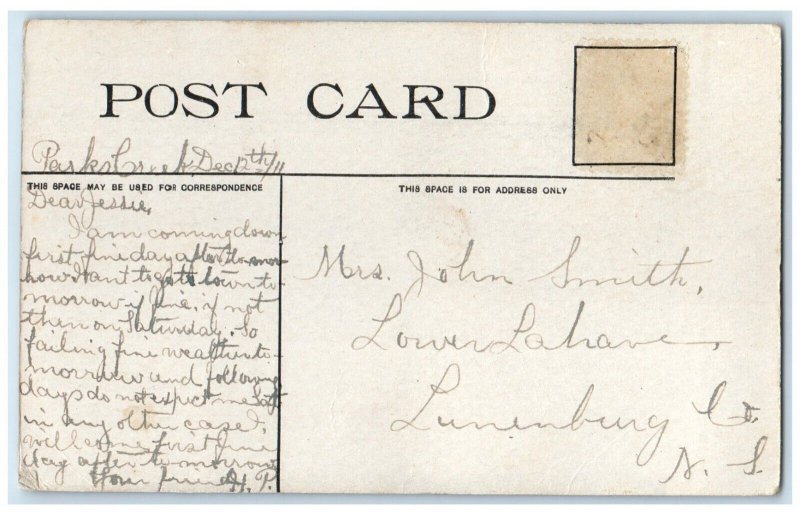 POST CARD
Parks Creek Dec 12th/11
THIS SPACE MAY BE USED FOR CORRESPONDENCE
THIS SPACE IS FOR ADDRESS ONLY
Dear Jessie,
I am coming down
first fine day after to-mor-
row. Want to go to town to-
morrow if fine, if not
then on Saturday. So
failing fine weather to-
morrow and following
days do not expect me Sat.
in any other case I
will come first fine
day after to-morrow
Your friend H. P.
Mrs. John Smith,
Lower Lahave,
Lunenburg Co.
N. S.